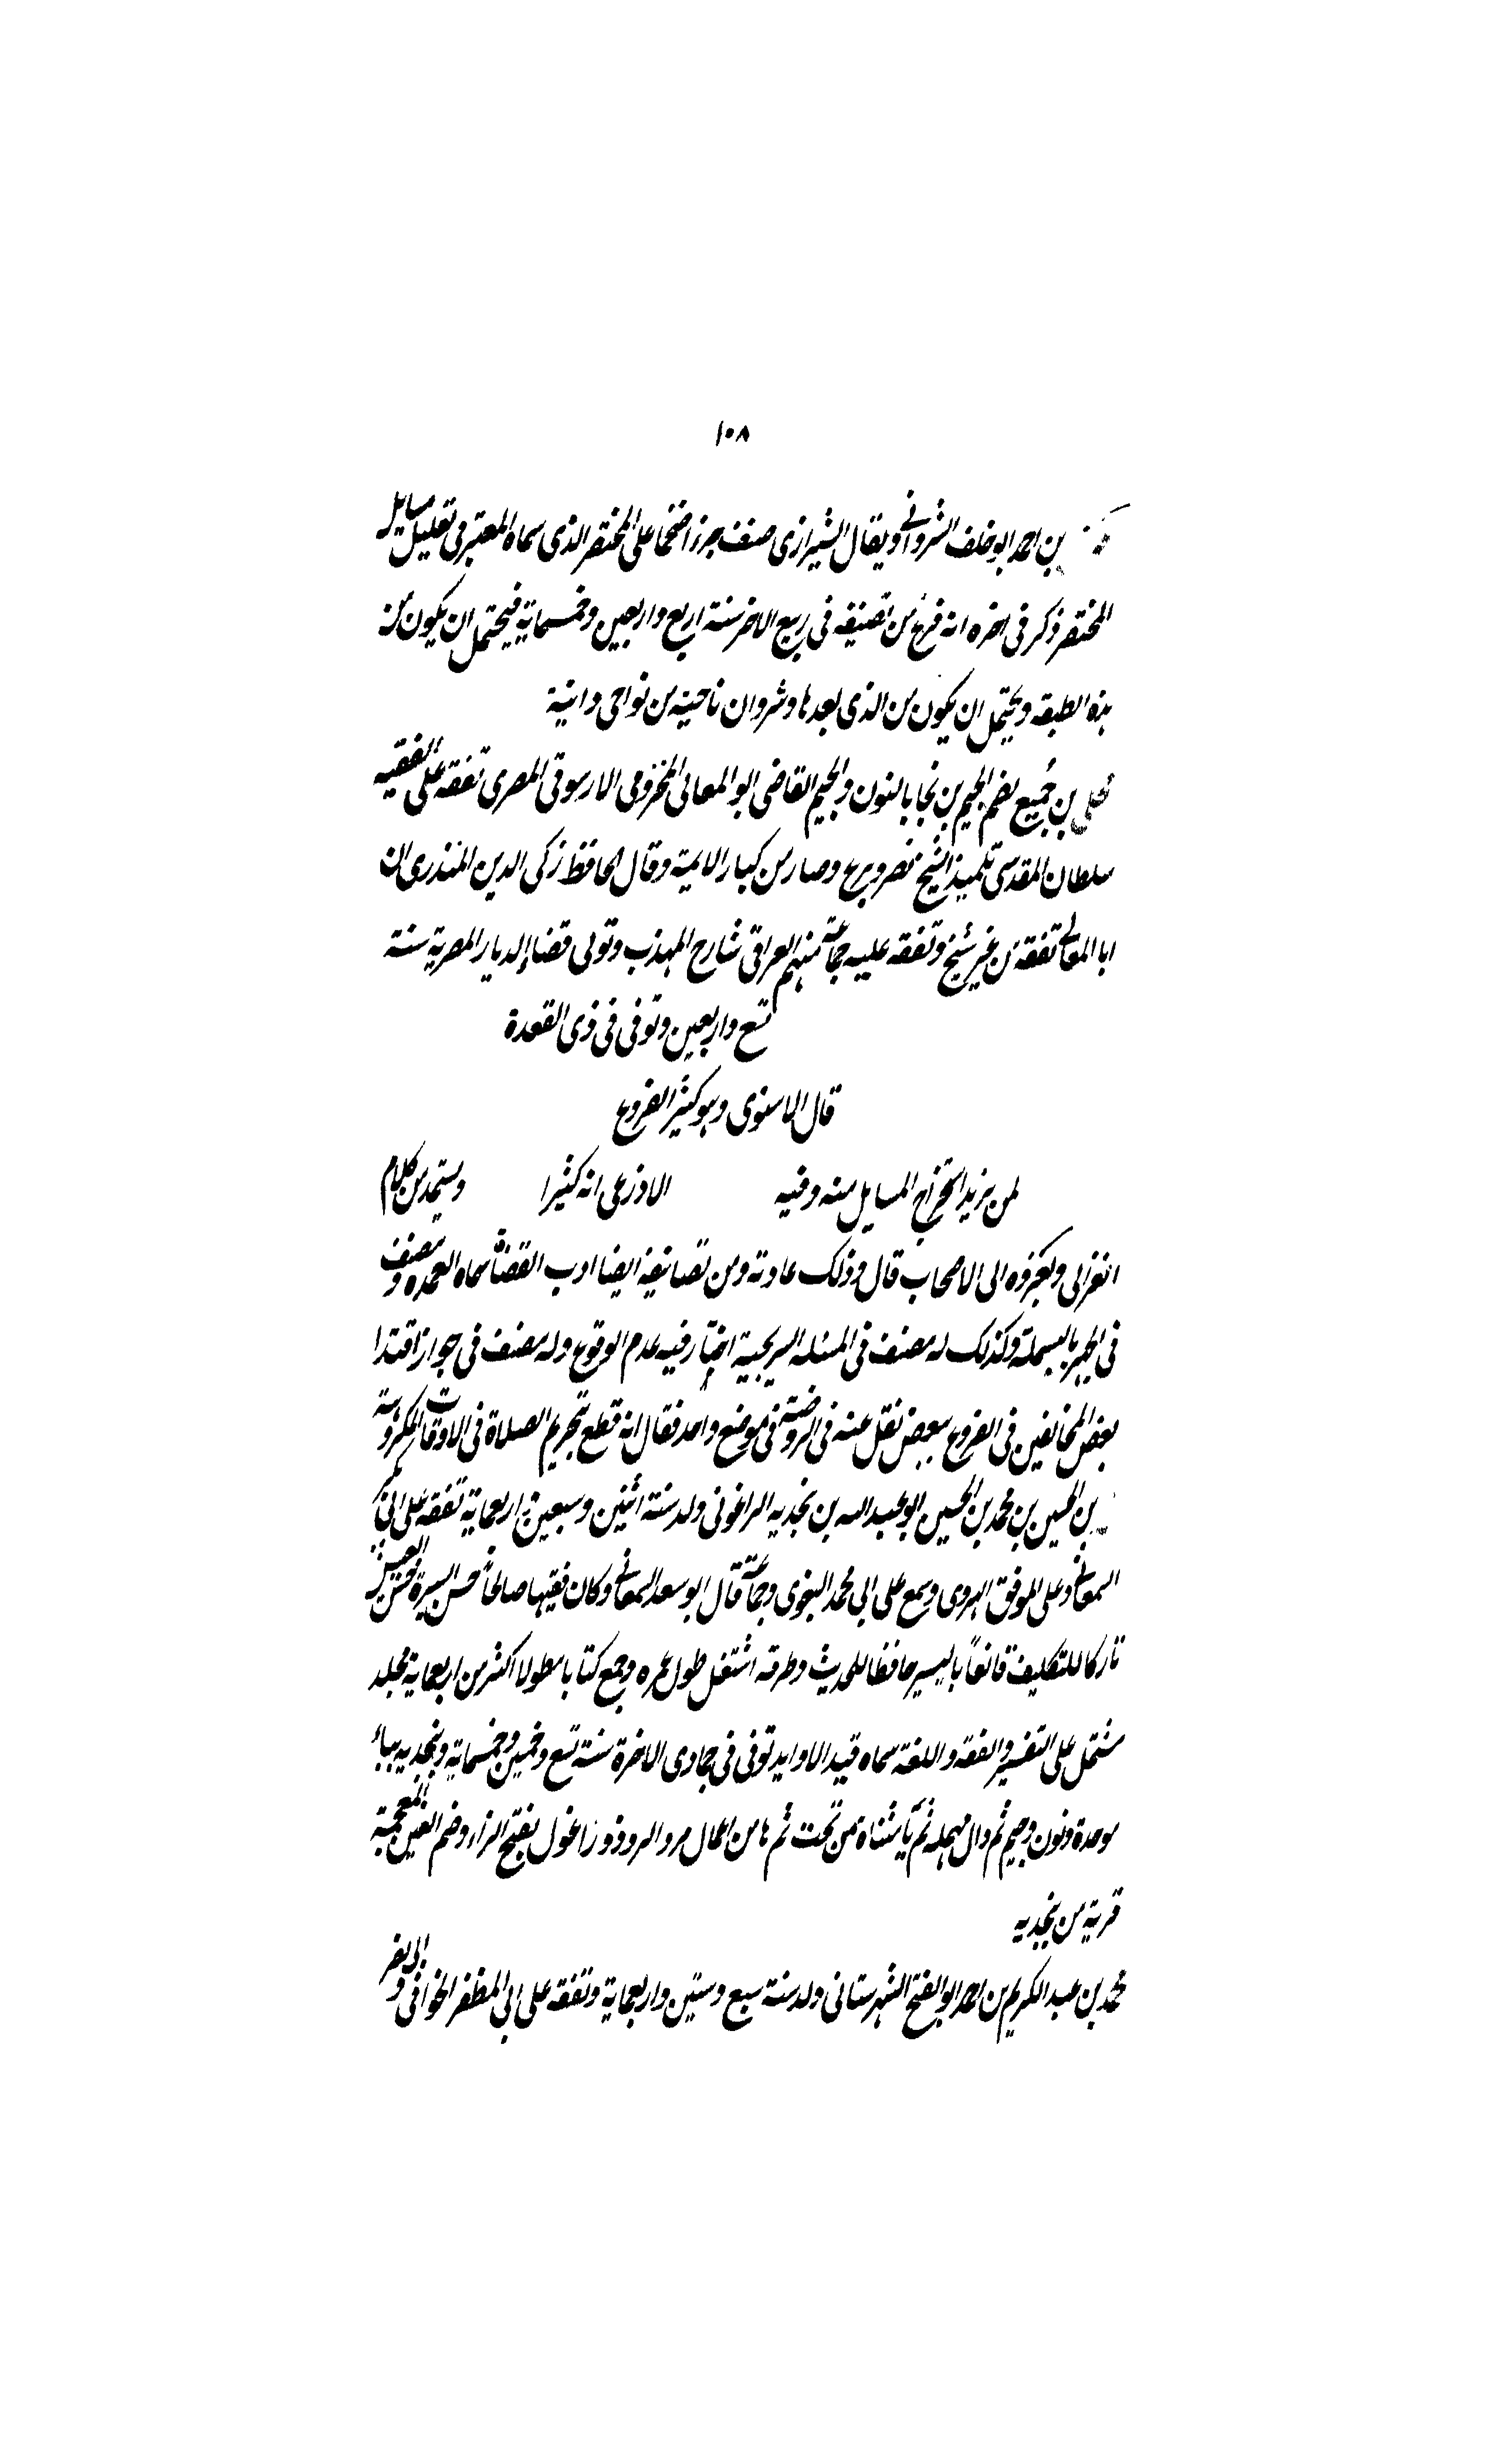 ١٠٨
بن احمد ابو خلف الشروانى ويقال الشيرازى صنف جزءا ضخما على المختصر الذى سماه المعتبر فى تعليل مسايل
المختصر ذكر فى اخره انه فرغ من تصنيفه فى ربيع الاخر سنة اربع واربعين وخمسماية فيحتمل ان يكون من
هذه الطبقه ويحتمل ان يكون من الذى بعدها وشروان ناحية من نواحى
مجلى بن جُميع بضم الجيم بن نجا بالنون والجيم القاضى ابو المعالى المخزومى الارسوفى المصرى تفقه على الفقيه
سلطان المقدسى تلميذ الشيخ نصر وبرع وصار من كبار الايمة وقال الحافظ زكى الدين المنذرى ان
ابا المعالى تفقه من غير شيخ وتفقه عليه جماعة منهم العراقى شارح المهذب وتولى قضاء الديار المصرية سنة
تسع واربعين وتوفى فى ذى القعدة
قال الاسنوى وهو كثير الفروع
لمن يريد استخراج المسايل منه وفيه الاذرعى انه كثيرا ويستمد من كلام
الغزالى ويعزوه الى الاصحاب قال وذلك عادته ومن تصانيفه ايضا ادب القضاة سماه العمدة ومصنف
فى الجهر بالبسملة وكذلك له مصنف فى المسئله السريجية اختار فيه عدم الوقوع وله مصنف فى جواز اقتدا
بعض المخالفين فى الفروع ببعض نقل عنه فى الروضة فى موضع واحد فقال انه قطع بتحريم الصلاة فى الاوقات المكروهة
بن الحسين بن محمد بن الحسين ابو عبد الله بن بنجديه الزاغونى ولد سنة اثنين وسبعين و اربعماية تفقه على ابى بكر
السمعانى وعلى الموفق الهروى وسمع على ابى محمد البغوى وجماعة قال ابو سعد السمعانى وكان فقيها صالحاً حسن السيرة خشن العيش
تاركا للتكليف قانعاً باليسير حافظا للحديث وطرقه اشتغل طول عمره وجمع كتابا مطولا اكثر من اربعماية مجلد
مشتمل على التفسير والفقه واللغه سماه قيد الاوابد توفى فى جمادى الاخرة سنة تسع وخمسين وخمسماية وبنجديه بباء
موحدة ونون وجيم ثم دال مهمله ثم ياء مثناة من تحت ثم ها من اعمال مرو الروذ وزاغول بفتح الزاء وضم الغين المعجمة
قرية من بنجديه
محمد بن عبد الكريم بن احمد ابو الفتح الشهرستانى ولد سنة سبع وستين واربعماية وتفقه على ابى المظفر الخوافى وابى نصر